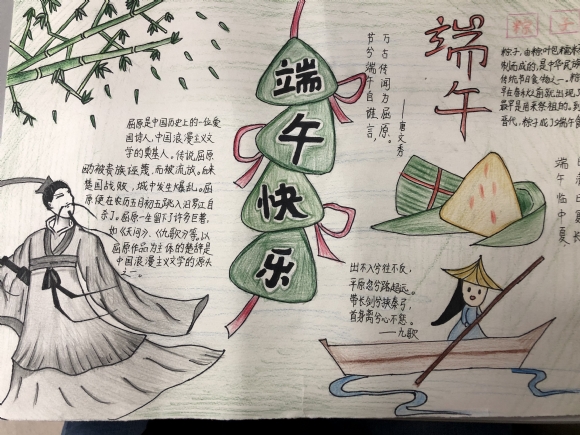 端
午
快
乐
屈原是中国历史上的一位爱
国诗人,中国浪漫主义文
学的奠基人。传说屈原
被贵族诬蔑,而被流放。
楚国战败,城中发生爆乱。屈
原便在农历五月初五跳入汨罗江自
杀了。屈原一生留下了许多巨著,
如《天问》、《九歌》等。以
屈原作品为主体的楚辞是
中国浪漫主义文学的源头
之一。
节分端午自谁言,
万古传闻为屈原。
——唐文秀
出不入兮往不反,
平原忽兮路超远。
带长剑兮挟秦弓,
首身离兮心不惩。
——九歌
端午
粽子
粽子,由粽叶包糯米
制而成的,是中华民族
传统节日食物之一。粽
早在春秋之前就出现
最早是用来祭祖的。到
晋代,粽子成了端午食
端午临中夏
日复长